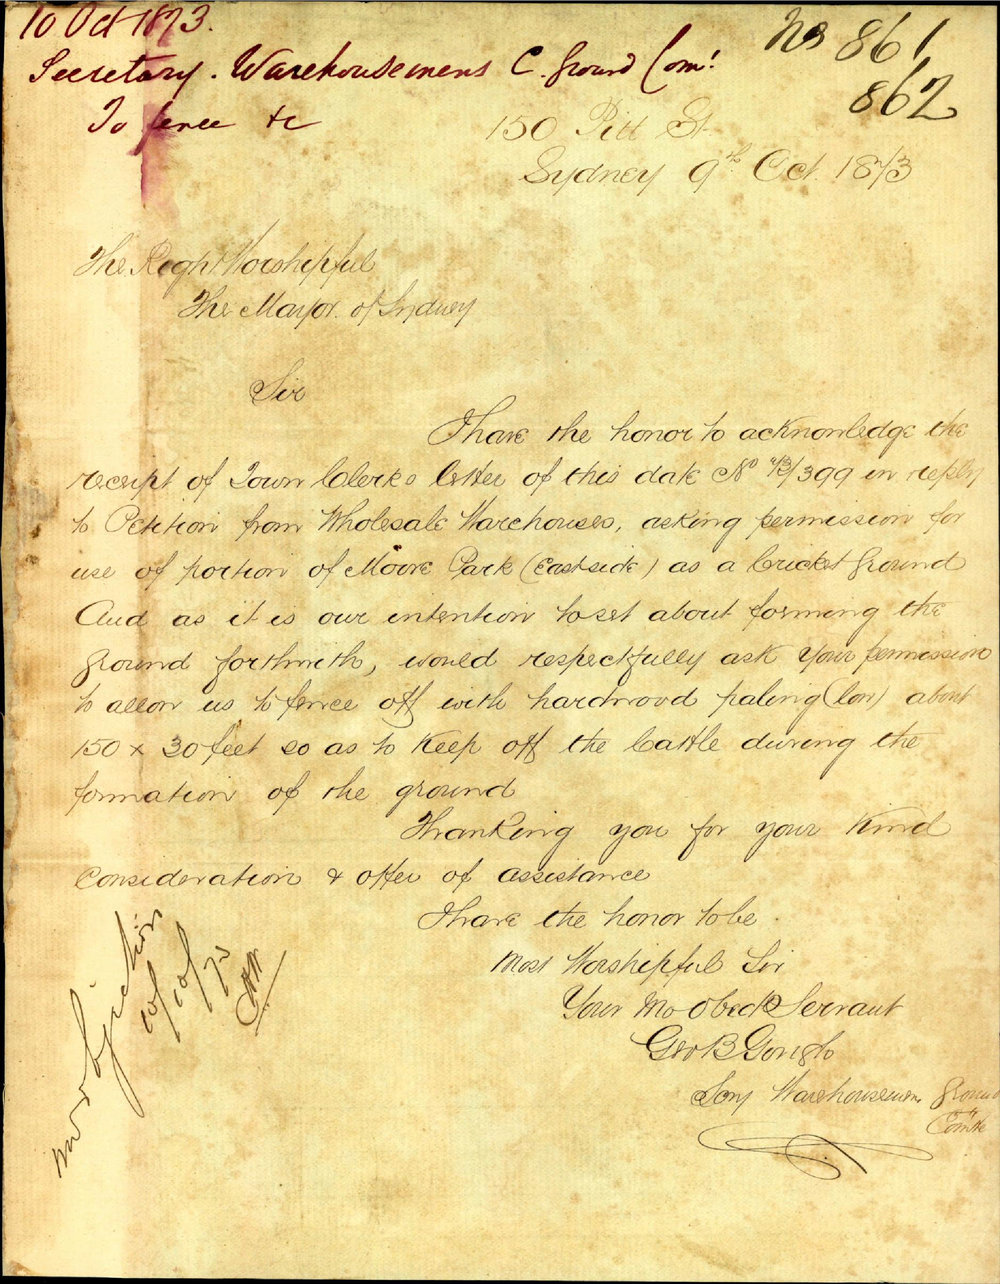 10 Oct 1873.
Secretary. Warehousemens C. Ground Com:
To fence &c
Nos 861
862
150 Pitt St
Sydney 9th Oct. 1873
The Right Worshipful
The Mayor of Sydney
Sir
I have the honor to acknowledge the
receipt of Town Clerks letter of this date No 73/399 in reply
to Petition from Wholesale Warehouses, asking permission for
use of portion of Moore Park (East side) as a Cricket ground
And as it is our intention to set about forming the
ground forthwith, would respectfully ask your permission
to allow us to fence off with hardwood paling (low) about
150 x 30 feet so as to keep off the Cattle during the
formation of the ground
Thanking you for your kind
Consideration & offer of assistance
I have the honor to be
Most Worshipful Sir
Your Mo Obedt Servant
Geo B
Secy Warehousemen Ground
Comtte
no objection
10/10/73